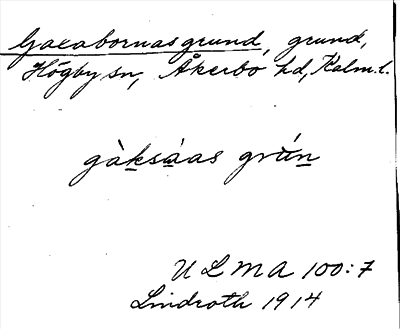 Gaxabornasgrund, grund,
Högby sn, Åkerbo hd, Kalm. l.
gàksáas grún
ULMA 100:7
Lindroth 1914